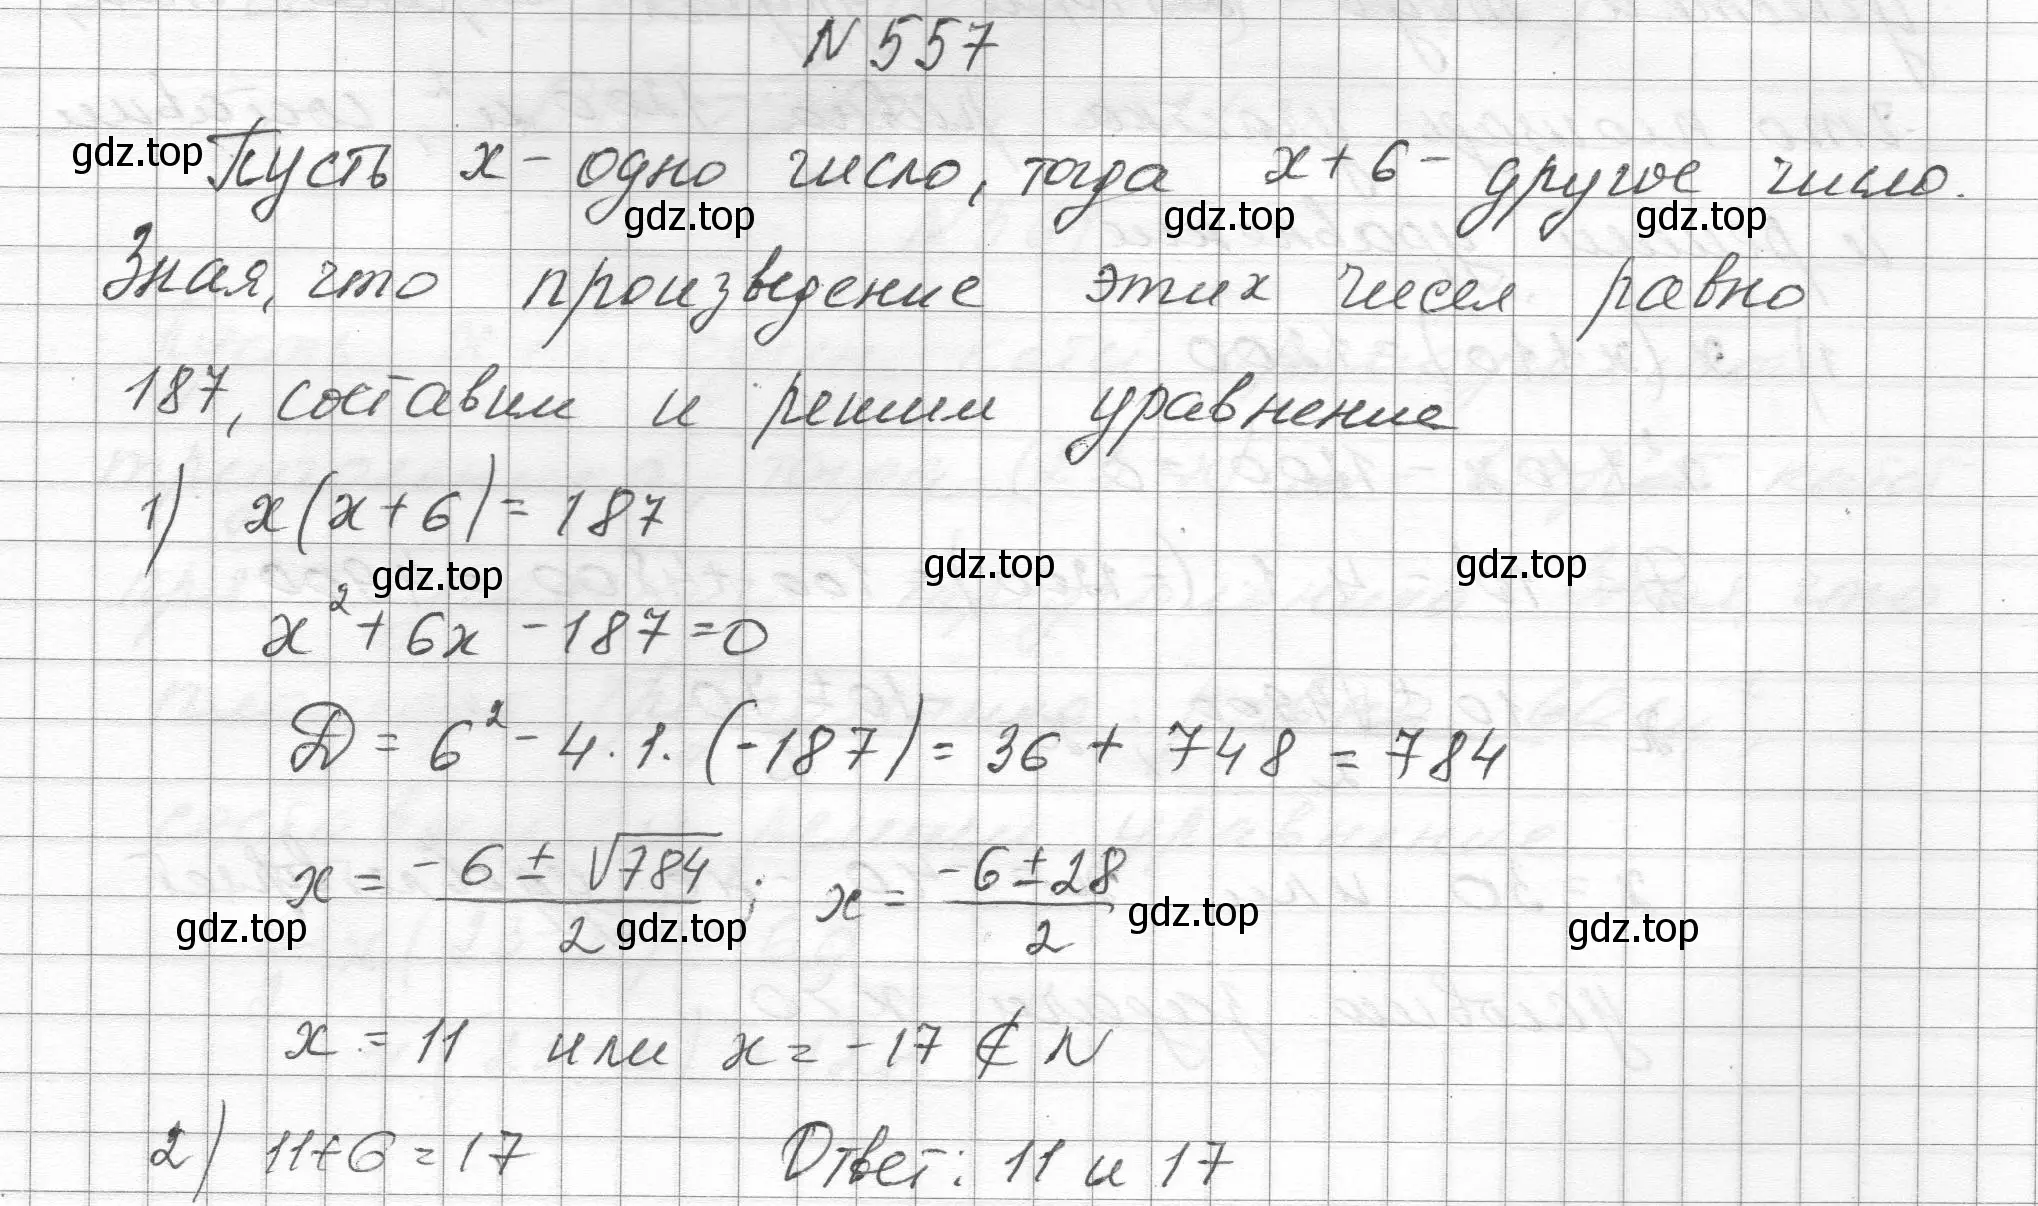 N 557
Пусть x - одно число, тогда x + 6 - другое число.
gdz.top
gdz.top gdz.top gdz.top
Зная, что произведение этих чисел равно
187, составим и решим уравнение
1) x(x+6) = 187
gdz.top gdz.top gdz.top
x² + 6x - 187 = 0
D = 6² - 4 · 1 · (-187) = 36 + 748 = 784
x = (-6 ± √784)/2 ; x = (-6 ± 28)/2
gdz.top gdz.top gdz.top gdz.top
x = 11 или x = -17 ∉ N
2) 11+6 = 17 Ответ: 11 и 17